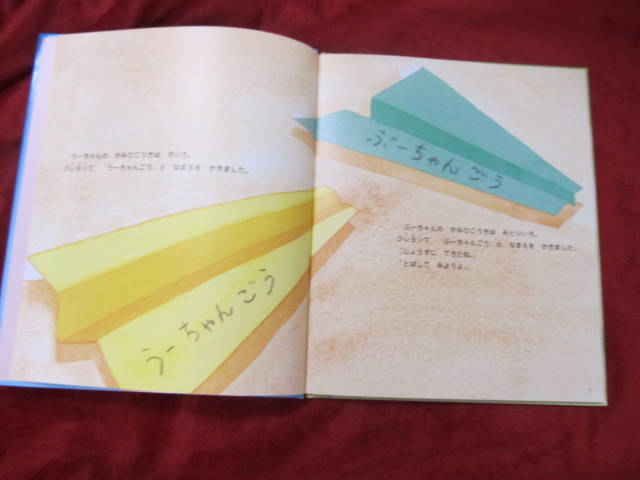 うーちゃんの かみひこうきは きいろ。
クレヨンで 「うーちゃんごう」と なまえを かきました。
うーちゃんごう
ぶーちゃんごう
ぶーちゃんの かみひこうきは みどりいろ。
クレヨンで 「ぶーちゃんごう」と なまえを かきました。
「じょうずに できたね。」
「とばして みようよ。」